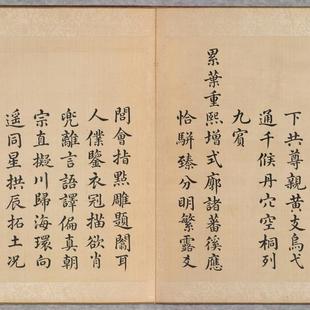 下共尊親黃支烏弋
通千候丹穴空桐列
九賓
累葉重熙增式廓諸蕃徯應
恰駢臻分明繁露爻
閭會指點雕題闟耳
人僕鑒衣冠描欲肖
兜離言語譯偏真朝
宗直擬川歸海環向
遙同星拱辰拓土況